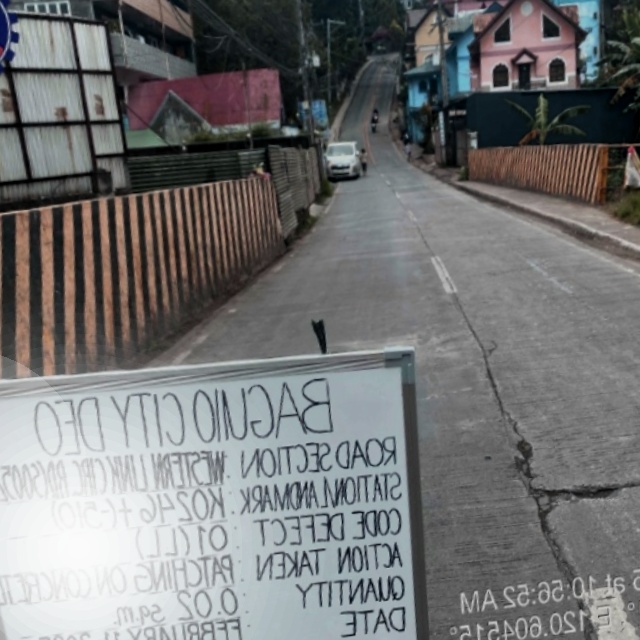 BAGUIO CITY DEO
ROAD SECTION : WESTERN LINK CIRC. RD
STATION/LANDMARK : K0246+
CODE DEFECT : 01 (LL)
ACTION TAKEN : PATCHING ON CONCRETE
QUANTITY : 0.02 sq.m.
DATE : FEBRUARY 11
at 10:56:52 AM
120.604515